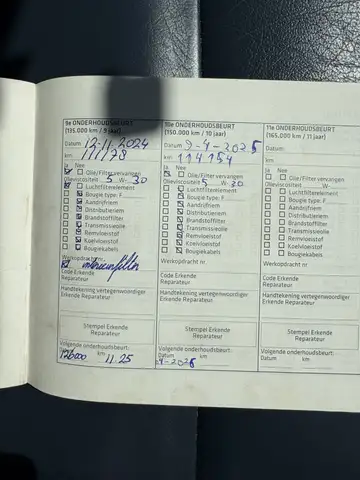 9e ONDERHOUDSBEURT
(135.000 km / 9 jaar)
Datum 12-11-2024
km 111178
Ja Nee
Olie/Filter vervangen
Olieviscositeit 5 W- 30
Luchtfilterelement
Bougie type: F
Aandrijfriem
Distributieriem
Brandstoffilter
Transmissieolie
Remvloeistof
Koelvloeistof
Bougiekabels
Werkopdracht nr.
interieurfilter
Code Erkende
Reparateur
Handtekening vertegenwoordiger
Erkende Reparateur
Stempel Erkende
Reparateur
Volgende onderhoudsbeurt:
126000 km 11.25
10e ONDERHOUDSBEURT
(150.000 km / 10 jaar)
Datum 9-4-2025
km 114154
Ja Nee
Olie/Filter vervangen
Olieviscositeit 5 W- 30
Luchtfilterelement
Bougie type: F
Aandrijfriem
Distributieriem
Brandstoffilter
Transmissieolie
Remvloeistof
Koelvloeistof
Bougiekabels
Werkopdracht nr.
Code Erkende
Reparateur
Handtekening vertegenwoordiger
Erkende Reparateur
Stempel Erkende
Reparateur
Volgende onderhoudsbeurt:
Datum km
11e ONDERHOUDSBEURT
(165.000 km / 11 jaar)
Datum
km
Ja Nee
Olie/Filter vervangen
Olieviscositeit W-
Luchtfilterelement
Bougie type: F
Aandrijfriem
Distributieriem
Brandstoffilter
Transmissieolie
Remvloeistof
Koelvloeistof
Bougiekabels
Werkopdracht nr.
Code Erkende
Reparateur
Handtekening vertegenwoordiger
Erkende Reparateur
Stempel Erkende
Reparateur
Volgende onderhoudsbeurt:
Datum km